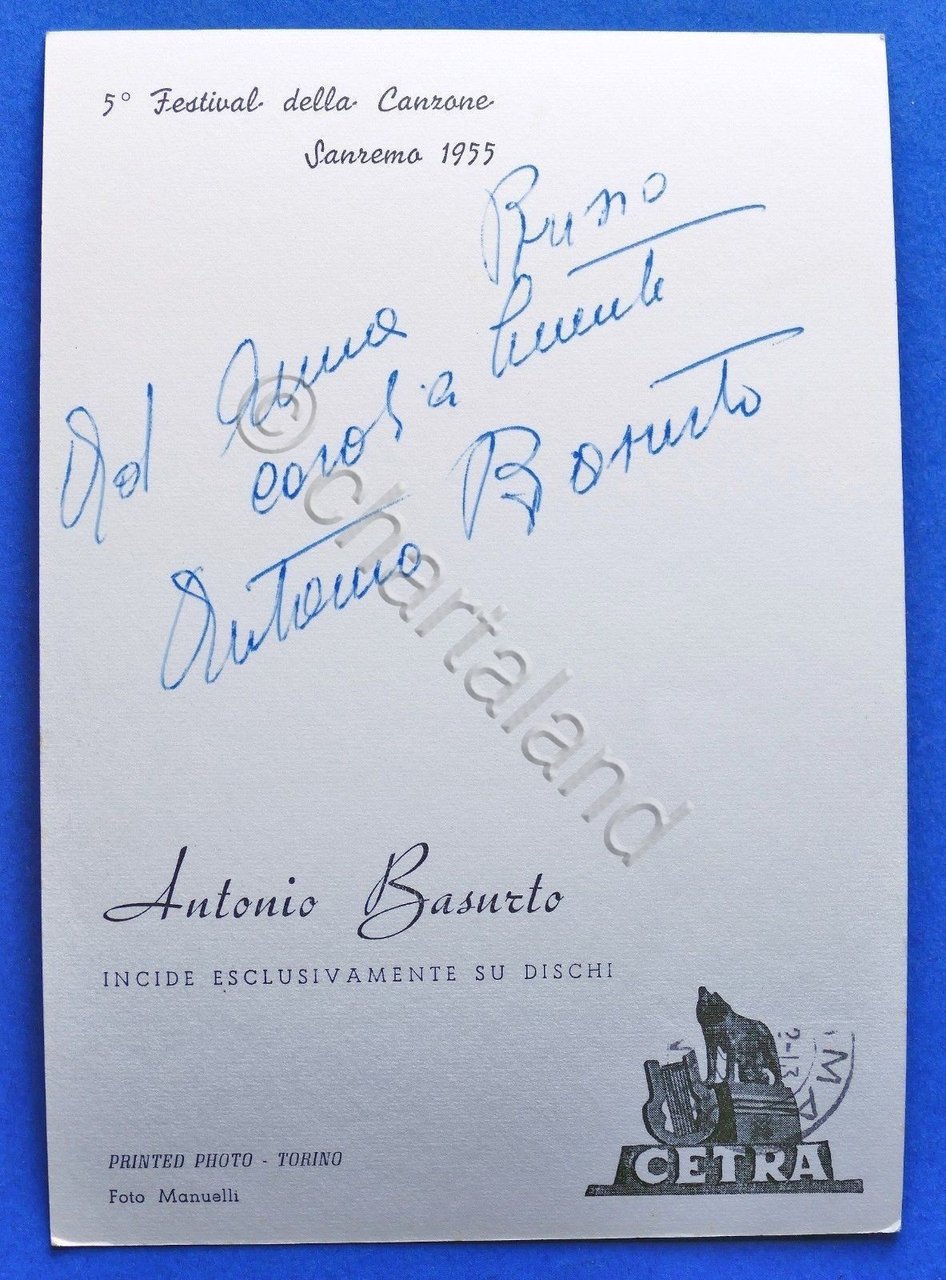 5° Festival della Canzone
Sanremo 1955
Ad Anna Bruno
cordialmente
Antonio Basurto
© chartaland
Antonio Basurto
INCIDE ESCLUSIVAMENTE SU DISCHI
CETRA
PRINTED PHOTO - TORINO
Foto Manuelli